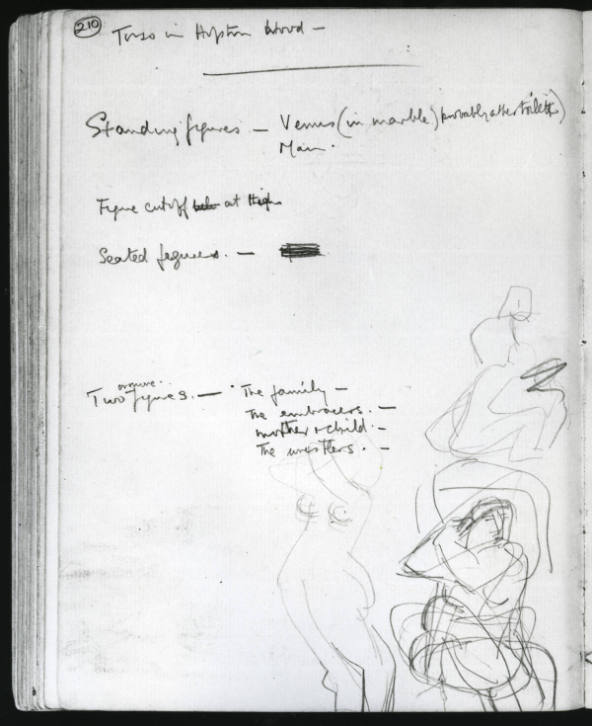 210
Torso in Hopton Wood —
Standing figures — Venus (in marble) (probably other toilets)
Man.
Figure cut off below at thigh
Seated figures. —
or more.
Two figures. — The family —
The embracers. —
mother & child. —
The wrestlers. —